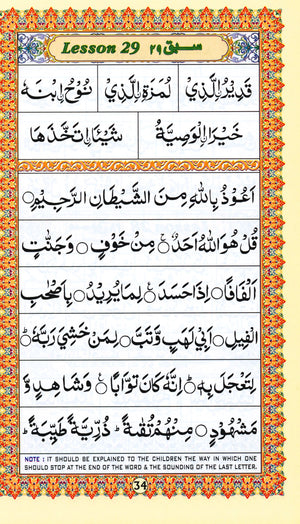 Lesson 29 سبق ۲۹
قَدِيْرُ اِۨلَّذِيْ لُمَزَةِ اِۨلَّذِيْ نُوْحُ اِۨبْنَهٗ
خَيْرَا اِۨلْوَصِيَّةُ شَيْئَا اِۨتَّخَذَهَا
اَعُوْذُ بِاللّٰهِ مِنَ الشَّيْطَانِ الرَّجِيْمِ○
قُلْ هُوَ اللّٰهُ اَحَدٌ○ مِنْ خَوْفٍ○ وَجَنّٰتٍ
اَلْفَافًا○ اِذَا حَسَدَ○ لِمَا يُرِيْدُ○ بِاَصْحٰبِ
الْفِيْلِ○ اَبِيْ لَهَبٍ وَّتَبَّ○ لِمَنْ خَشِيَ رَبَّهٗ○
لِتَعْجَلَ بِهٖ○ اِنَّهٗ كَانَ تَوَّابًا○ وَشَاهِدٍ وَّ
مَشْهُوْدٍ○ مِنْهُمْ تُقٰىةً ؕ ذُرِّيَّةً طَيِّبَةً ؕ
NOTE : IT SHOULD BE EXPLAINED TO THE CHILDREN THE WAY IN WHICH ONE
SHOULD STOP AT THE END OF THE WORD & THE SOUNDING OF THE LAST LETTER.
34